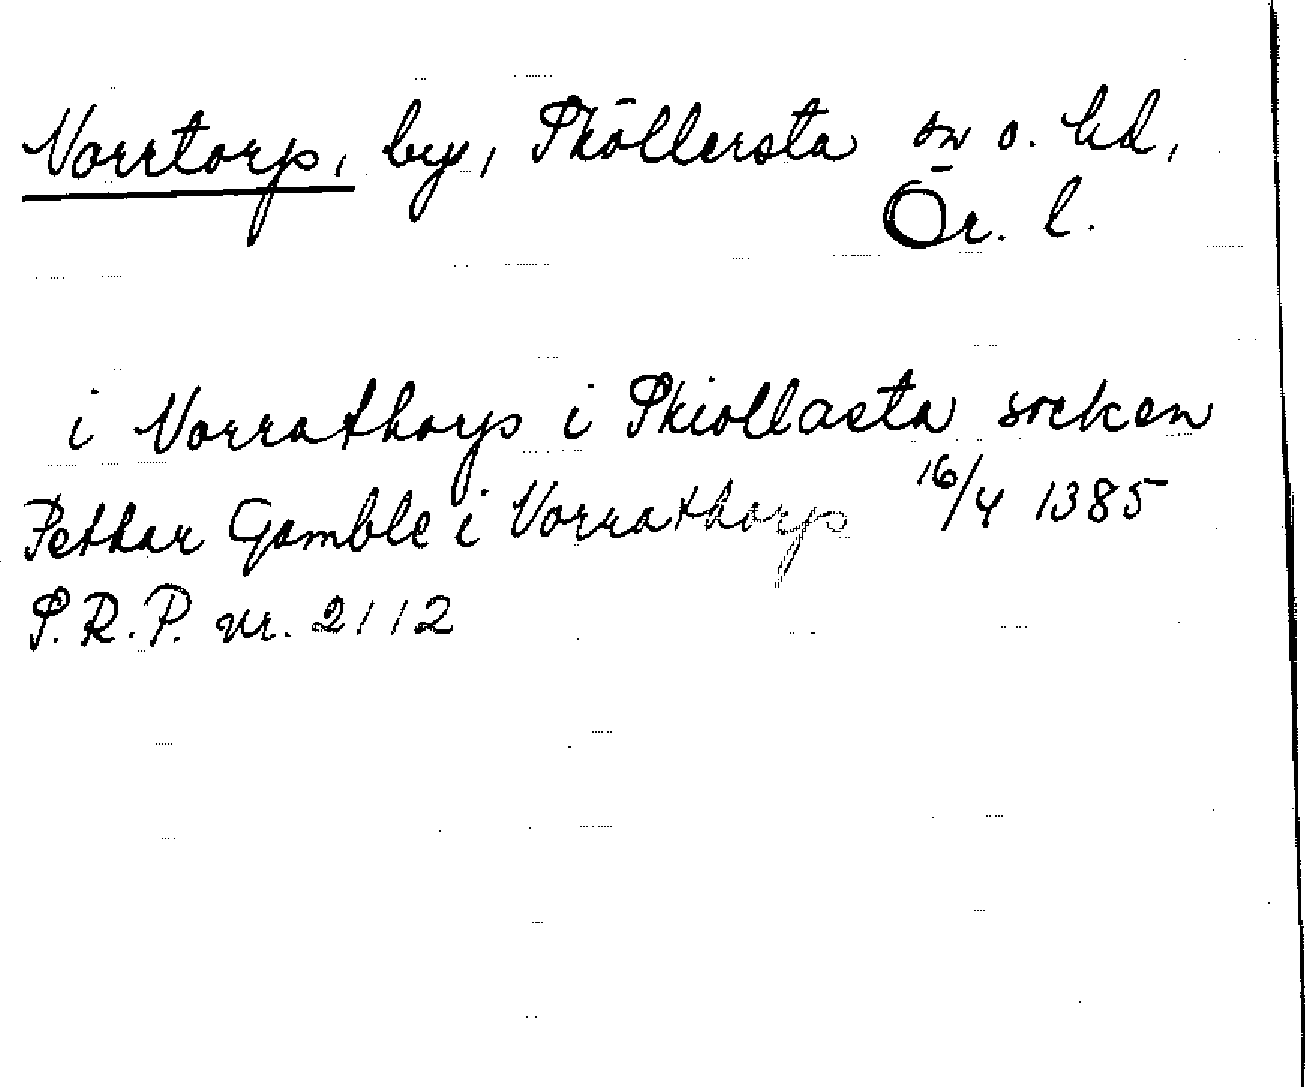 Vorrtorp, by, Sköllersta sn o. hd,
Ör. l.
i Vorrathorp i Skiollasta socken
Pethar Gamble i Vorrathorp 16/4 1385
S.R.P. nr. 2112